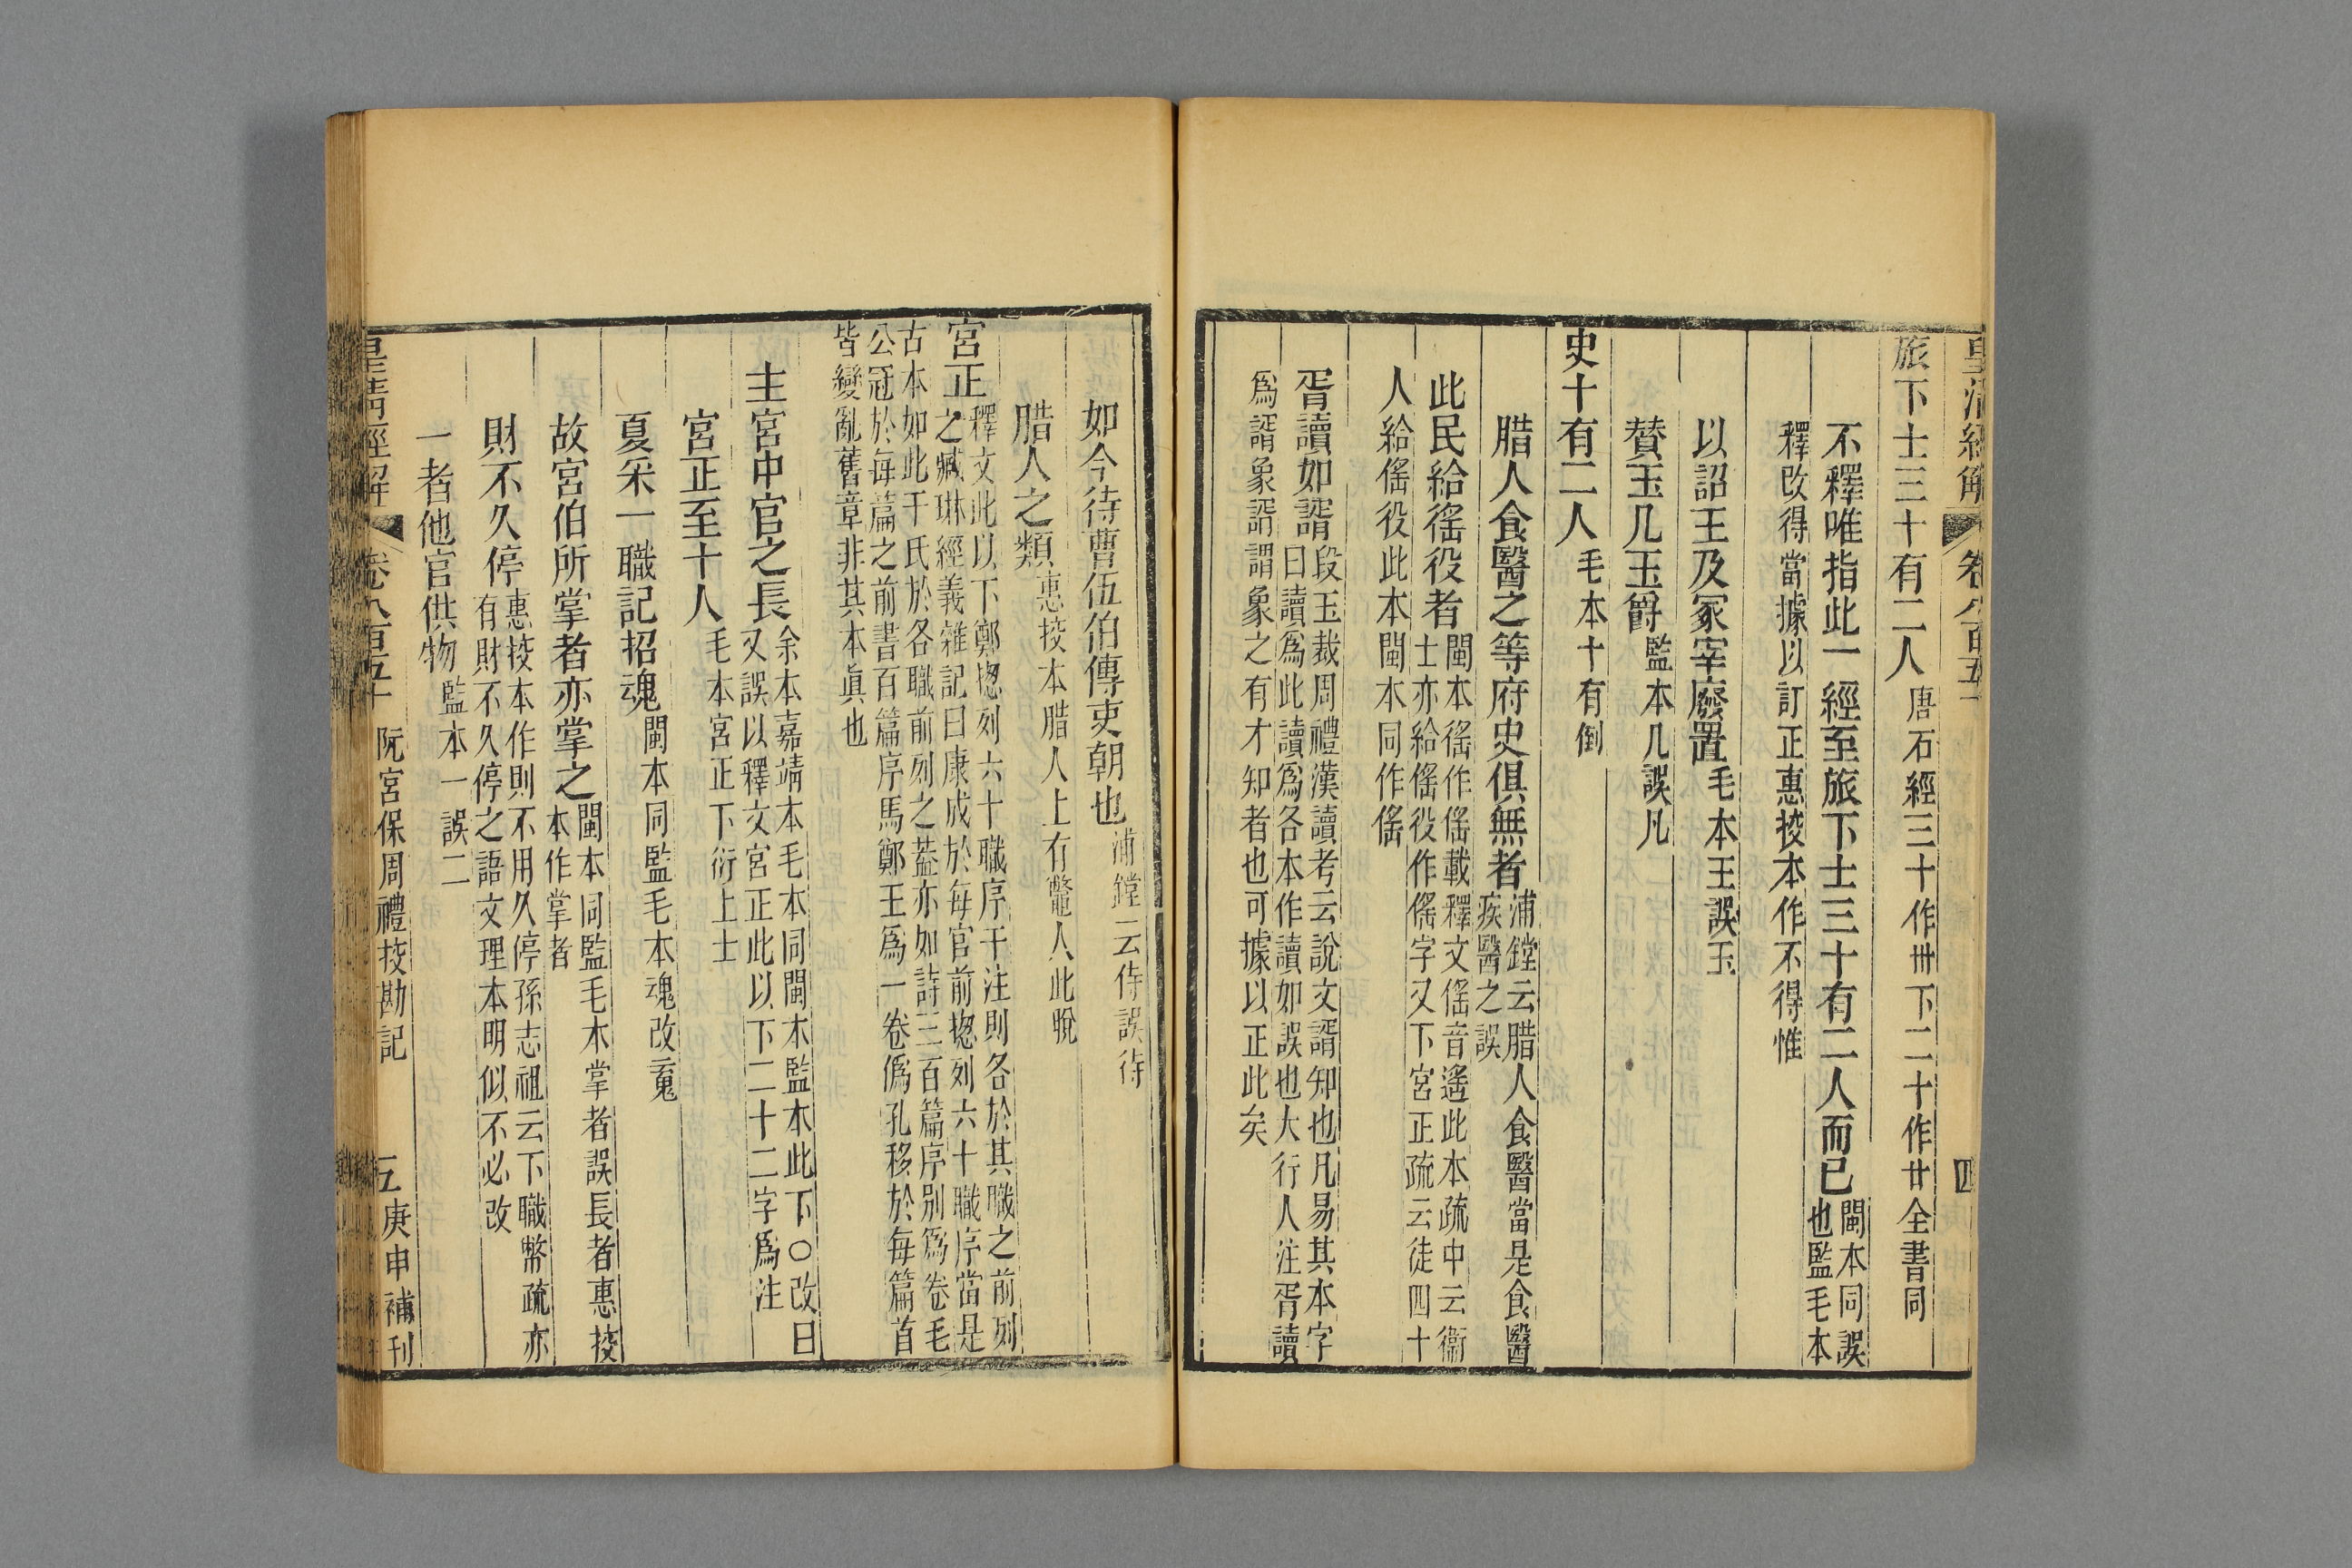 皇清經解 卷八百五十 四
旅下士三十有二人唐石經三十作卅下二十作廿全書同
不釋唯指此一經至旅下士三十有二人而已閩本同誤
也監毛本
釋改得當據以訂正惠挍本作不得惟
以詔王及冢宰廢置毛本王誤玉
贊玉几玉爵監本几誤凡
史十有二人毛本十有倒
腊人食醫之等府史俱無者浦鏜云腊人食醫當是食醫
疾醫之誤
此民給徭役者閩本徭作傜載釋文傜音遙此本疏中云衞
士亦給傜役作傜字又下宮正疏云徒四十
人給傜役此本閩本同作傜
胥讀如諝段玉裁周禮漢讀考云說文諝知也凡易其本字
曰讀爲此讀爲各本作讀如誤也大行人注胥讀
爲諝象諝謂象之有才知者也可據以正此矣
如今待曹伍伯傳吏朝也浦鏜云侍誤待
腊人之類惠挍本腊人上有鼈人此脫
宮正釋文此以下鄭揔列六十職序干注則各於其職之前列
之臧琳經義雜記曰康成於每官前揔列六十職序當是
古本如此干氏於各職前列之葢亦如詩三百篇序別爲卷毛
公冠於每篇之前書百篇序馬鄭王爲一卷僞孔移於每篇首
皆變亂舊章非其本眞也
主宮中官之長余本嘉靖本毛本同閩本監本此下○改曰
又誤以釋文宮正此以下二十二字爲注
宮正至十人毛本宮正下衍上士
夏采一職記招魂閩本同監毛本魂改䰟
故宮伯所掌者亦掌之閩本同監毛本掌者誤長者惠挍
本作掌者
財不久停惠挍本作則不用久停孫志祖云下職幣疏亦
有財不久停之語文理本明似不必改
一者他官供物監本一誤二
皇清經解 卷八百五十 阮宮保周禮挍勘記 五 庚申補刊